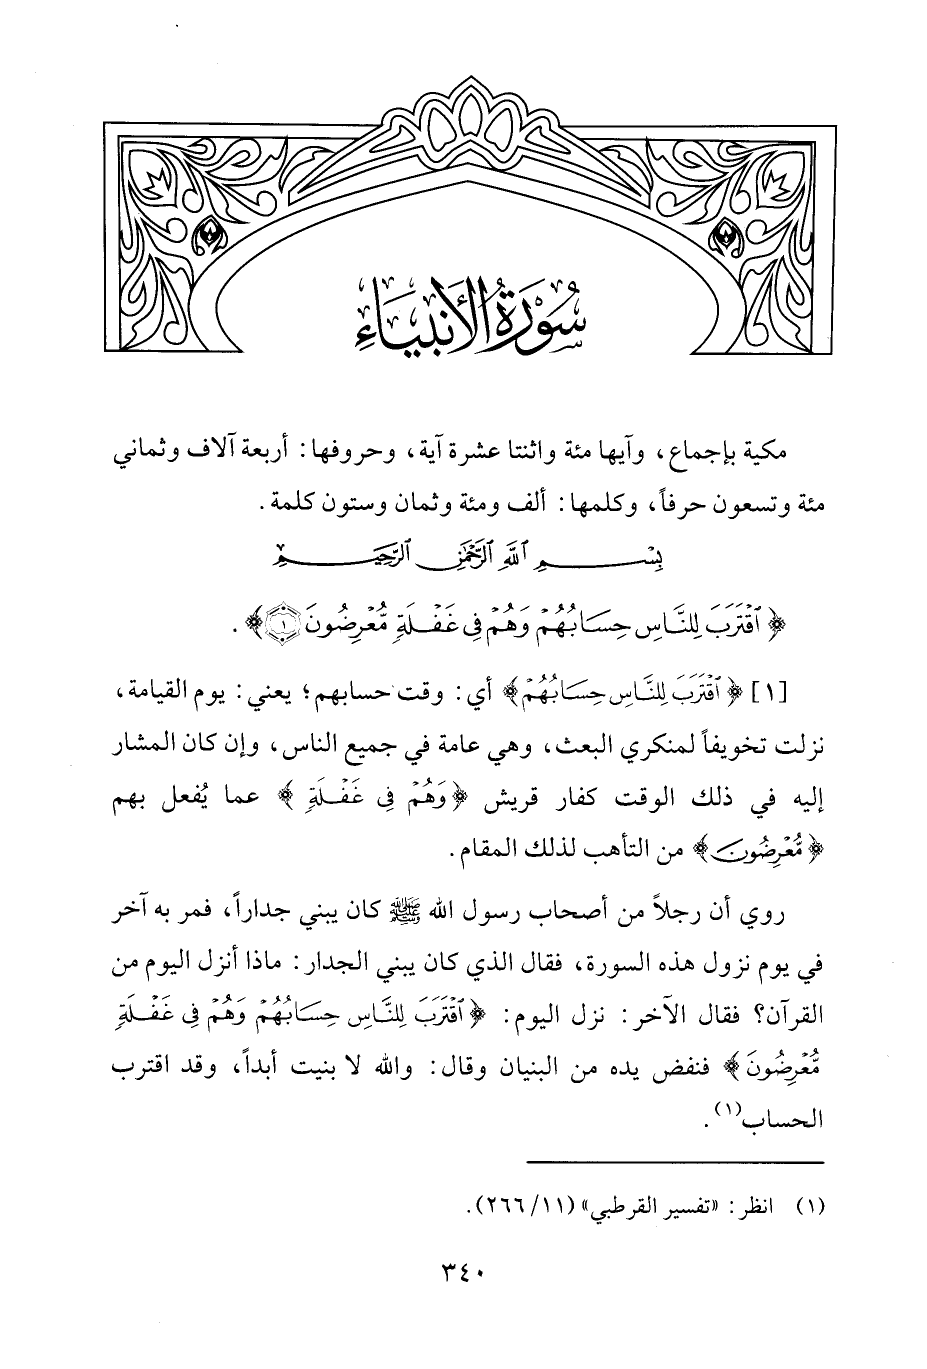 سُورَةُ الأَنبِيَاءِ
مكية بإجماع، وآيها مئة واثنتا عشرة آية، وحروفها: أربعة آلاف وثماني
مئة وتسعون حرفاً، وكلمها: ألف ومئة وثمان وستون كلمة.
بِسْمِ ٱللَّهِ ٱلرَّحْمَٰنِ ٱلرَّحِيمِ
﴿ٱقْتَرَبَ لِلنَّاسِ حِسَابُهُمْ وَهُمْ فِى غَفْلَةٍ مُّعْرِضُونَ ١﴾.
[١] ﴿ٱقْتَرَبَ لِلنَّاسِ حِسَابُهُمْ﴾ أي: وقت حسابهم؛ يعني: يوم القيامة،
نزلت تخويفاً لمنكري البعث، وهي عامة في جميع الناس، وإن كان المشار
إليه في ذلك الوقت كفار قريش ﴿وَهُمْ فِى غَفْلَةٍ﴾ عما يُفعل بهم
﴿مُّعْرِضُونَ﴾ من التأهب لذلك المقام.
روي أن رجلاً من أصحاب رسول الله ﷺ كان يبني جداراً، فمر به آخر
في يوم نزول هذه السورة، فقال الذي كان يبني الجدار: ماذا أنزل اليوم من
القرآن؟ فقال الآخر: نزل اليوم: ﴿ٱقْتَرَبَ لِلنَّاسِ حِسَابُهُمْ وَهُمْ فِى غَفْلَةٍ
مُّعْرِضُونَ﴾ فنفض يده من البنيان وقال: والله لا بنيت أبداً، وقد اقترب
الحساب(١).
(١) انظر: «تفسير القرطبي» (١١/ ٢٦٦).
٣٤٠